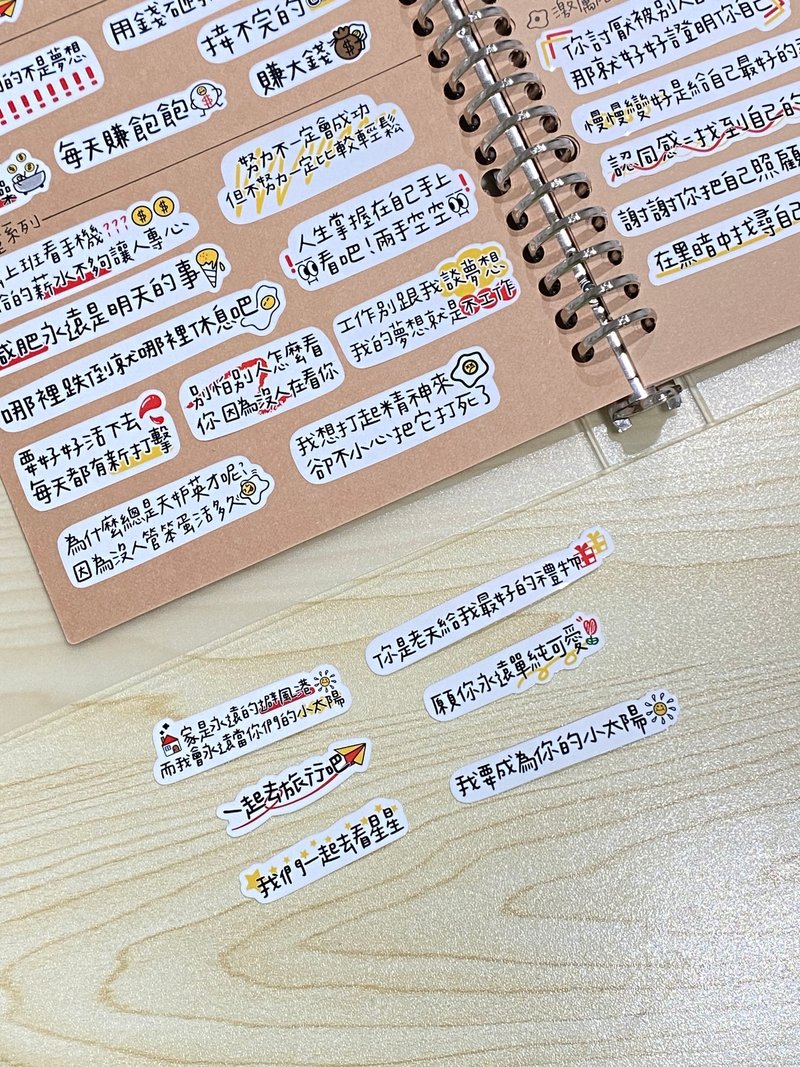 用錢
接不完的
的不是夢想
賺大錢
每天賺飽飽
努力不一定會成功
但不努力一定比較輕鬆
系列
上班看手機???
給的薪水不夠讓人專心
人生掌握在自己手上
看吧!兩手空空
減肥永遠是明天的事
工作別跟我談夢想
我的夢想就是不工作
哪裡跌倒就哪裡休息吧
別怕別人怎麼看
你因為沒人在看你
要好好活下去
每天都有新打擊
我想打起精神來
卻不小心把它打死了
為什麼總是天妒英才呢?
因為沒人管笨蛋活多久
激勵
你討厭被別人
那就好好證明你自己
慢慢變好是給自己最好的
認同感=找到自己的
謝謝你把自己照顧
在黑暗中找尋自己
你是老天給我最好的禮物
願你永遠單純可愛
家是永遠的避風港
而我會永遠當你們的小太陽
我要成為你的小太陽
一起去旅行吧
我們一起去看星星